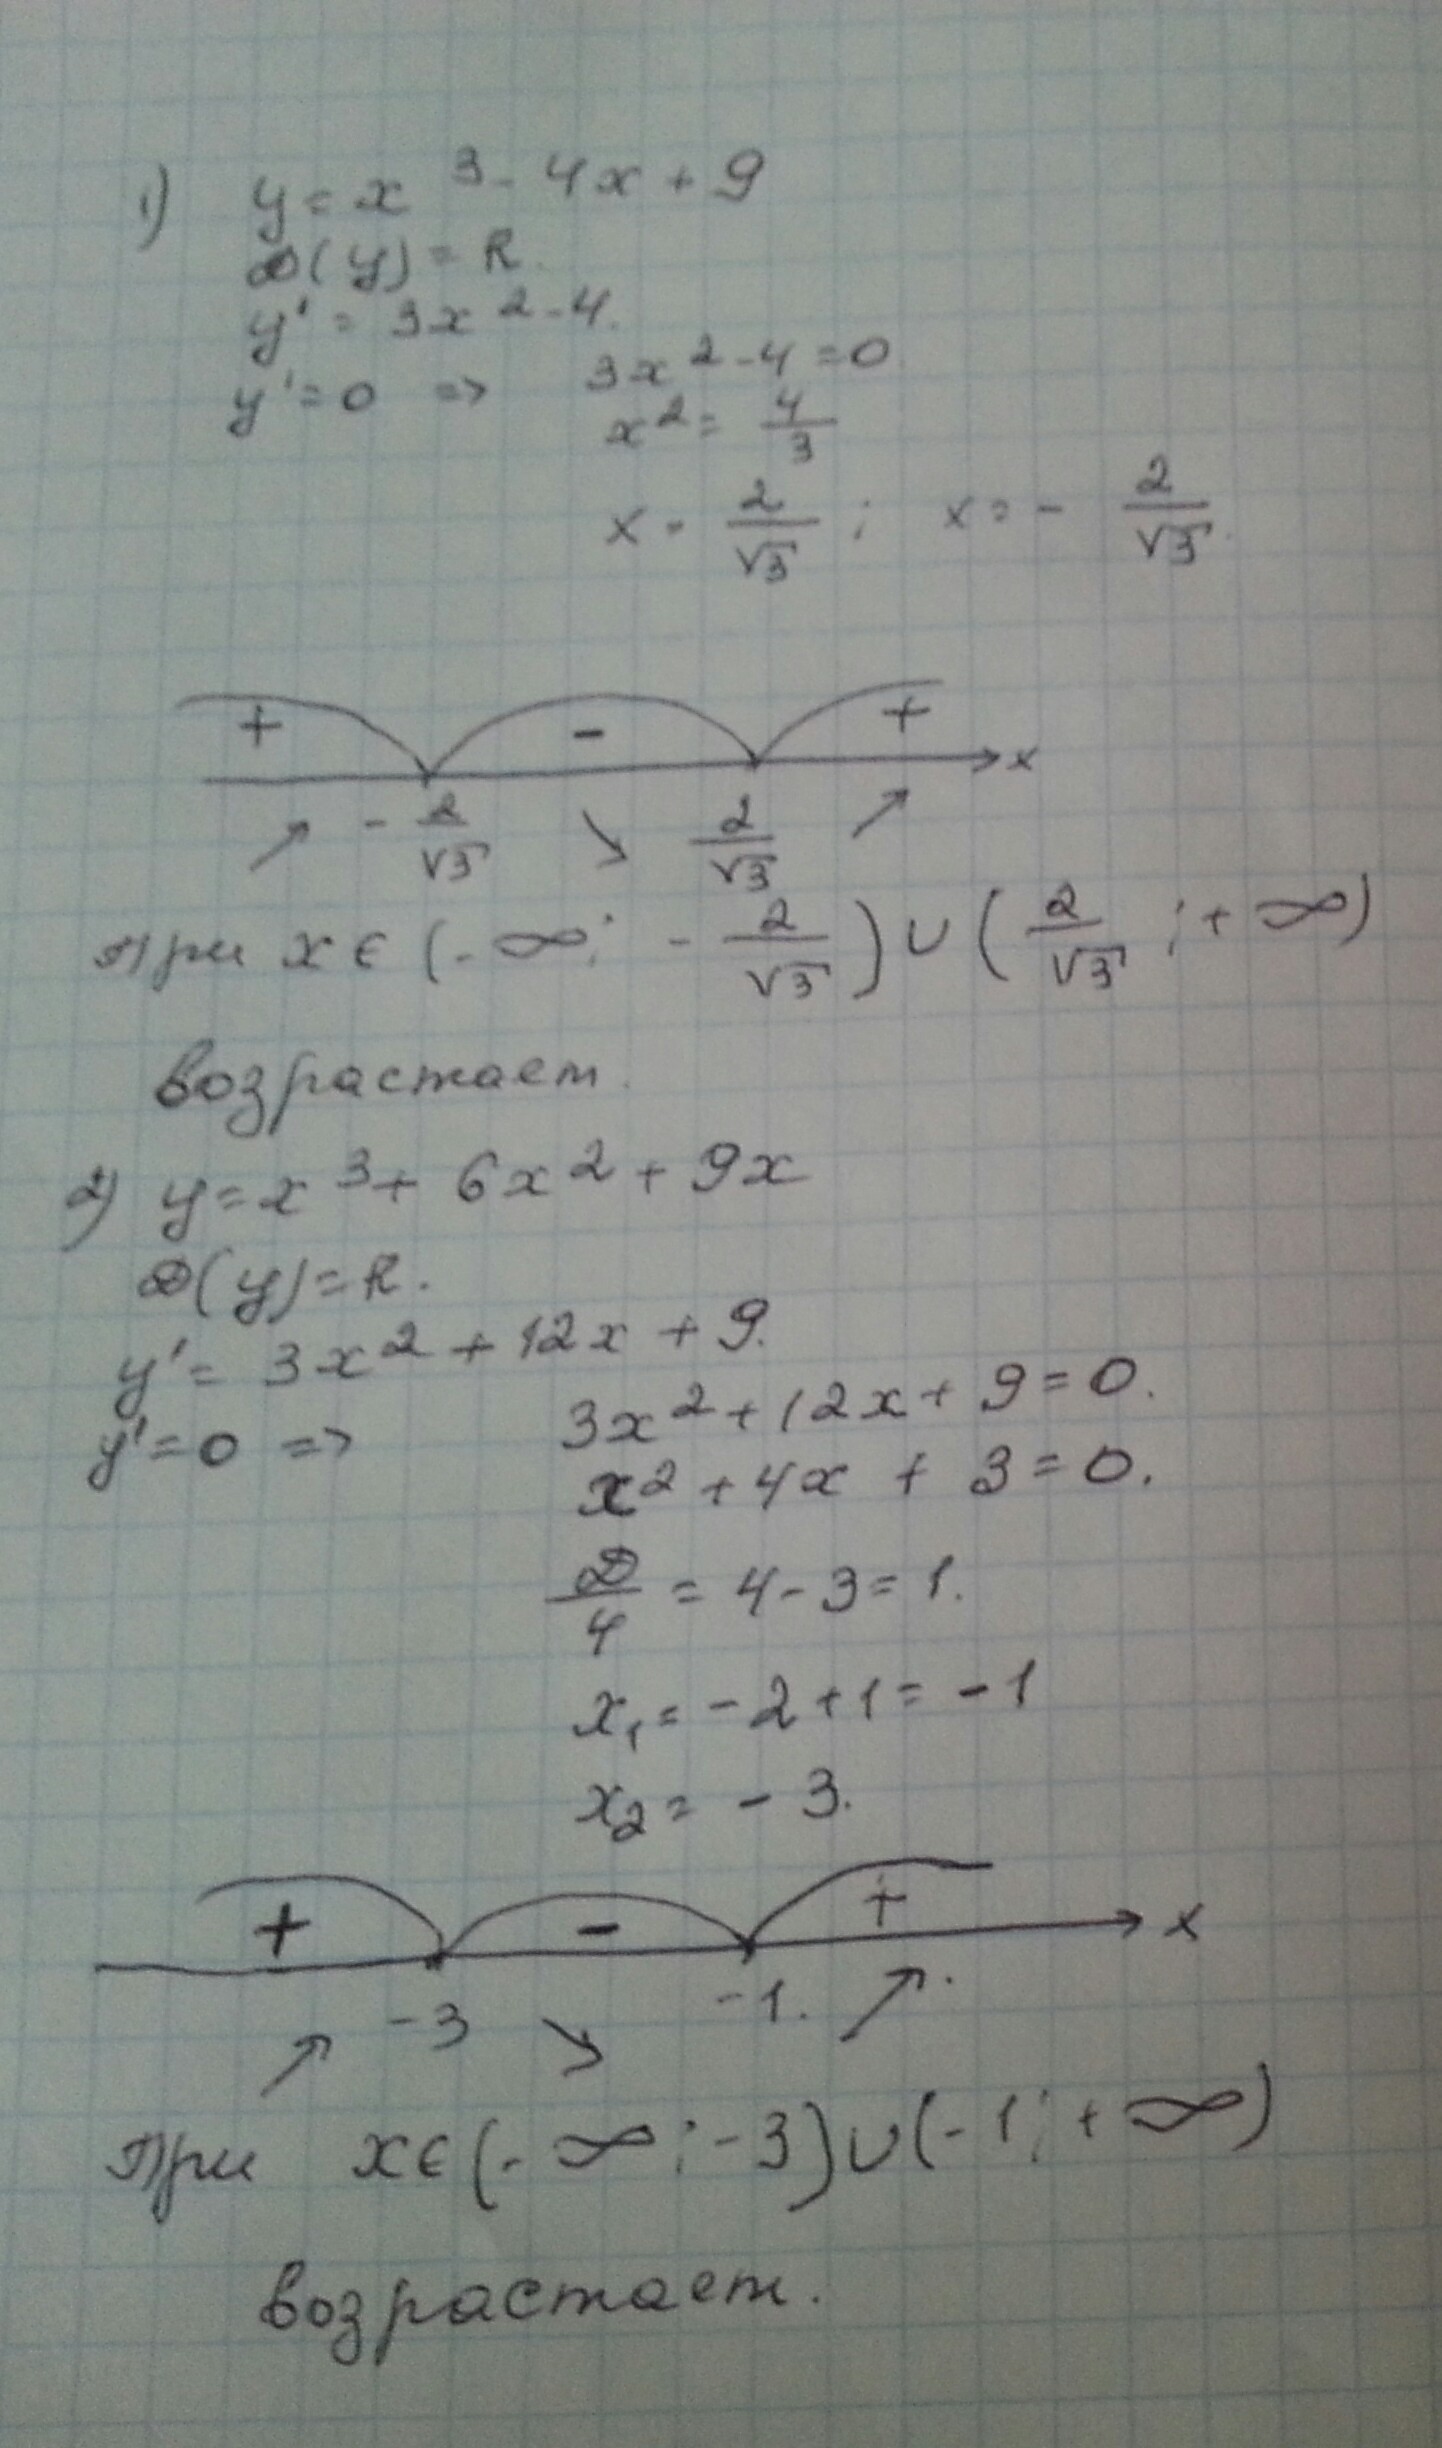 1) y = x³ - 4x + 9
D(y) = R.
y' = 3x² - 4.
y' = 0 => 3x² - 4 = 0
x² = 4/3
x = 2/√3 ; x = - 2/√3.
+ - + x
- 2/√3 2/√3
При x ∈ (-∞; - 2/√3) ∪ (2/√3 ; +∞)
возрастает.
2) y = x³ + 6x² + 9x
D(y) = R.
y' = 3x² + 12x + 9.
y' = 0 => 3x² + 12x + 9 = 0.
x² + 4x + 3 = 0.
D/4 = 4 - 3 = 1.
x₁ = -2 + 1 = -1
x₂ = - 3.
+ - + x
-3 -1.
При x ∈ (-∞; -3) ∪ (-1; +∞)
возрастает.